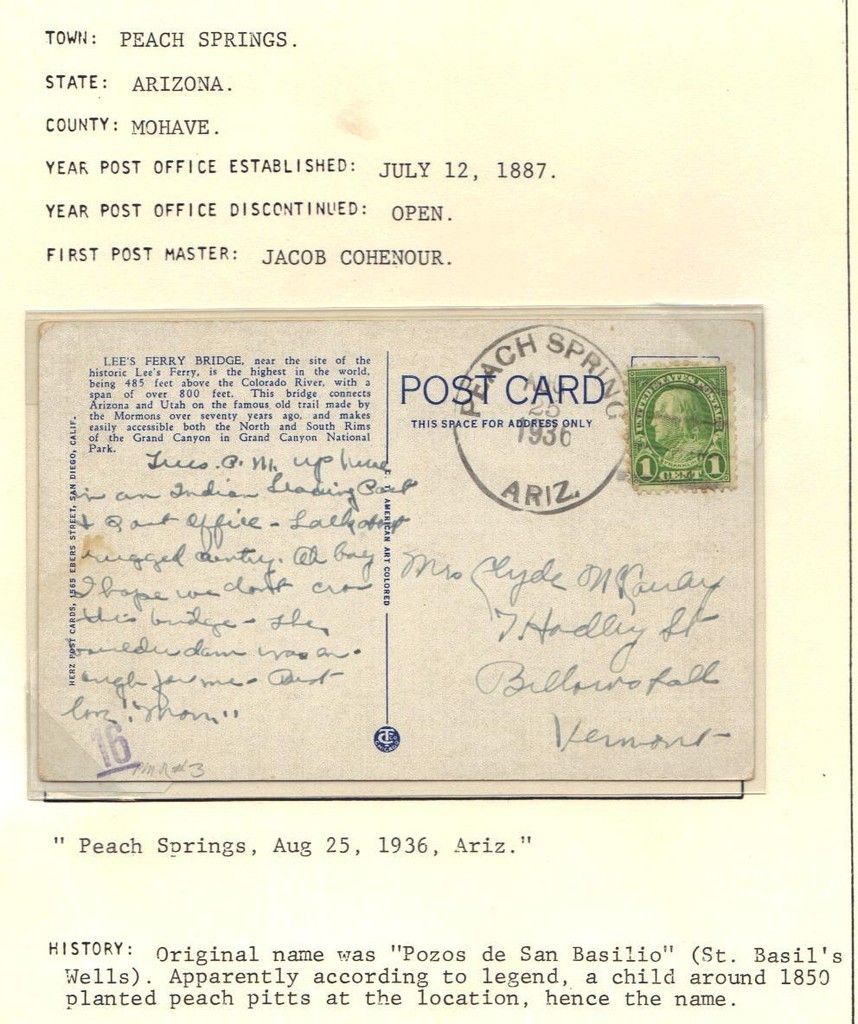 TOWN: PEACH SPRINGS.
STATE: ARIZONA.
COUNTY: MOHAVE.
YEAR POST OFFICE ESTABLISHED: JULY 12, 1887.
YEAR POST OFFICE DISCONTINUED: OPEN.
FIRST POST MASTER: JACOB COHENOUR.
LEE'S FERRY BRIDGE, near the site of the
historic Lee's Ferry, is the highest in the world,
being 485 feet above the Colorado River, with a
span of over 800 feet. This bridge connects
Arizona and Utah on the famous old trail made by
the Mormons over seventy years ago, and makes
easily accessible both the North and South Rims
of the Grand Canyon in Grand Canyon National
Park.
HERZ POST CARDS, 1565 EBERS STREET, SAN DIEGO, CALIF.
AMERICAN ART COLORED
POST CARD
THIS SPACE FOR ADDRESS ONLY
PEACH SPRING
AUG
25
1936
ARIZ.
UNITED STATES POSTAGE
FRANKLIN
1 CENT 1
Tues. P.M. up here
in an Indian Trading Post
& Post Office -
rugged country. Oh boy
I hope we dont cross
this bridge - The
boulder dam was en-
ough for me - Best
love "Mom"
Mrs Clyde
7 Hadley St
Bellows Falls
Vermont
CHICAGO
16
#3
" Peach Springs, Aug 25, 1936, Ariz."
HISTORY: Original name was "Pozos de San Basilio" (St. Basil's
Wells). Apparently according to legend, a child around 1850
planted peach pitts at the location, hence the name.